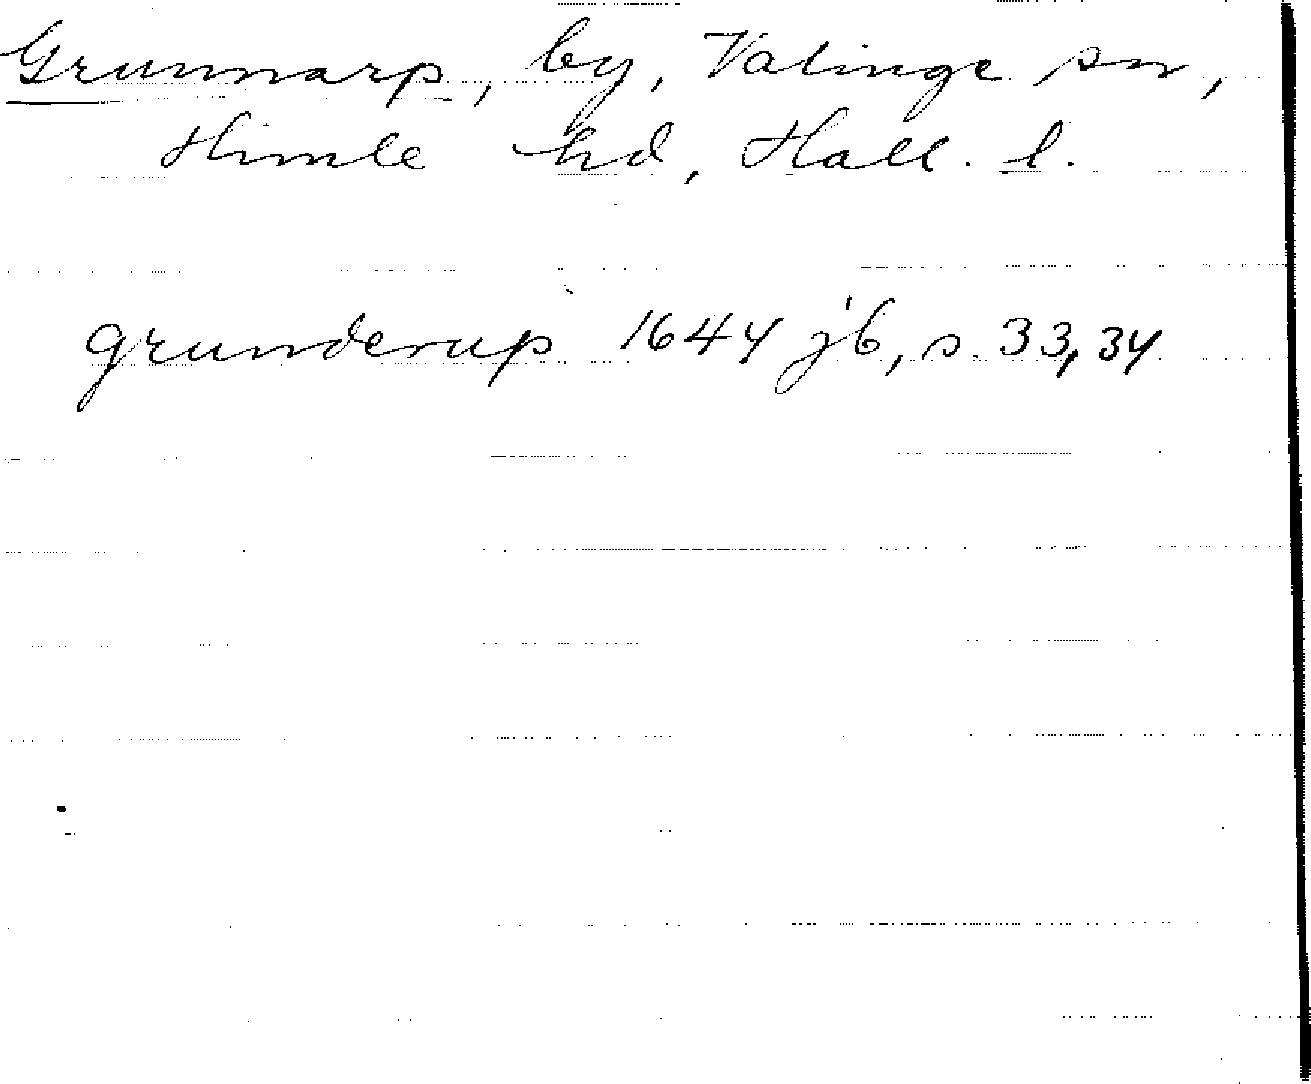 Grunnarp, by, Valinge sn,
Himle hd, Hall. l.
Grunderup 1644 jb, s. 33, 34